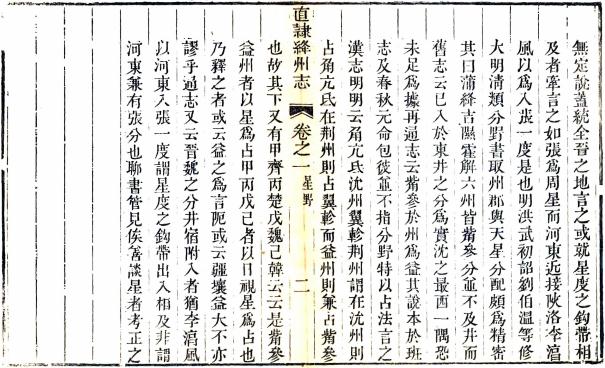 無定說蓋統全晉之地言之或就星度之鉤帶相
及者牽言之如張爲周星而河東近接陝洛李淳
風以爲入張一度是也明洪武初詔劉伯溫等修
大明清類分野書取州郡輿天星分配頗爲精密
其曰蒲絳吉隰霍解六州皆觜參分並不及井而
舊志云已入於東井之分爲實沈之最西一隅恐
未足爲據再通志云觜參於州爲益其說本於班
志及春秋元命包從並不指分野特以占法言之
漢志明明云角亢氐沇州翼軫荆州謂在沇州則
占角亢氐在荆州則占翼軫而益州則兼占觜參
直隸絳州志 卷之一 星野 二
也故其下又有甲齊丙楚戊魏己韓云云是觜參
益州者以星爲占甲丙戊己者以日視星爲占也
乃釋之者或云益之爲言阨或云疆壤益大不亦
謬乎通志又云晉魏之分井宿附入者猶李淳風
以河東入張一度謂星度之鉤帶出入相及非謂
河東兼有張分也聊書管見俟善談星者考正之